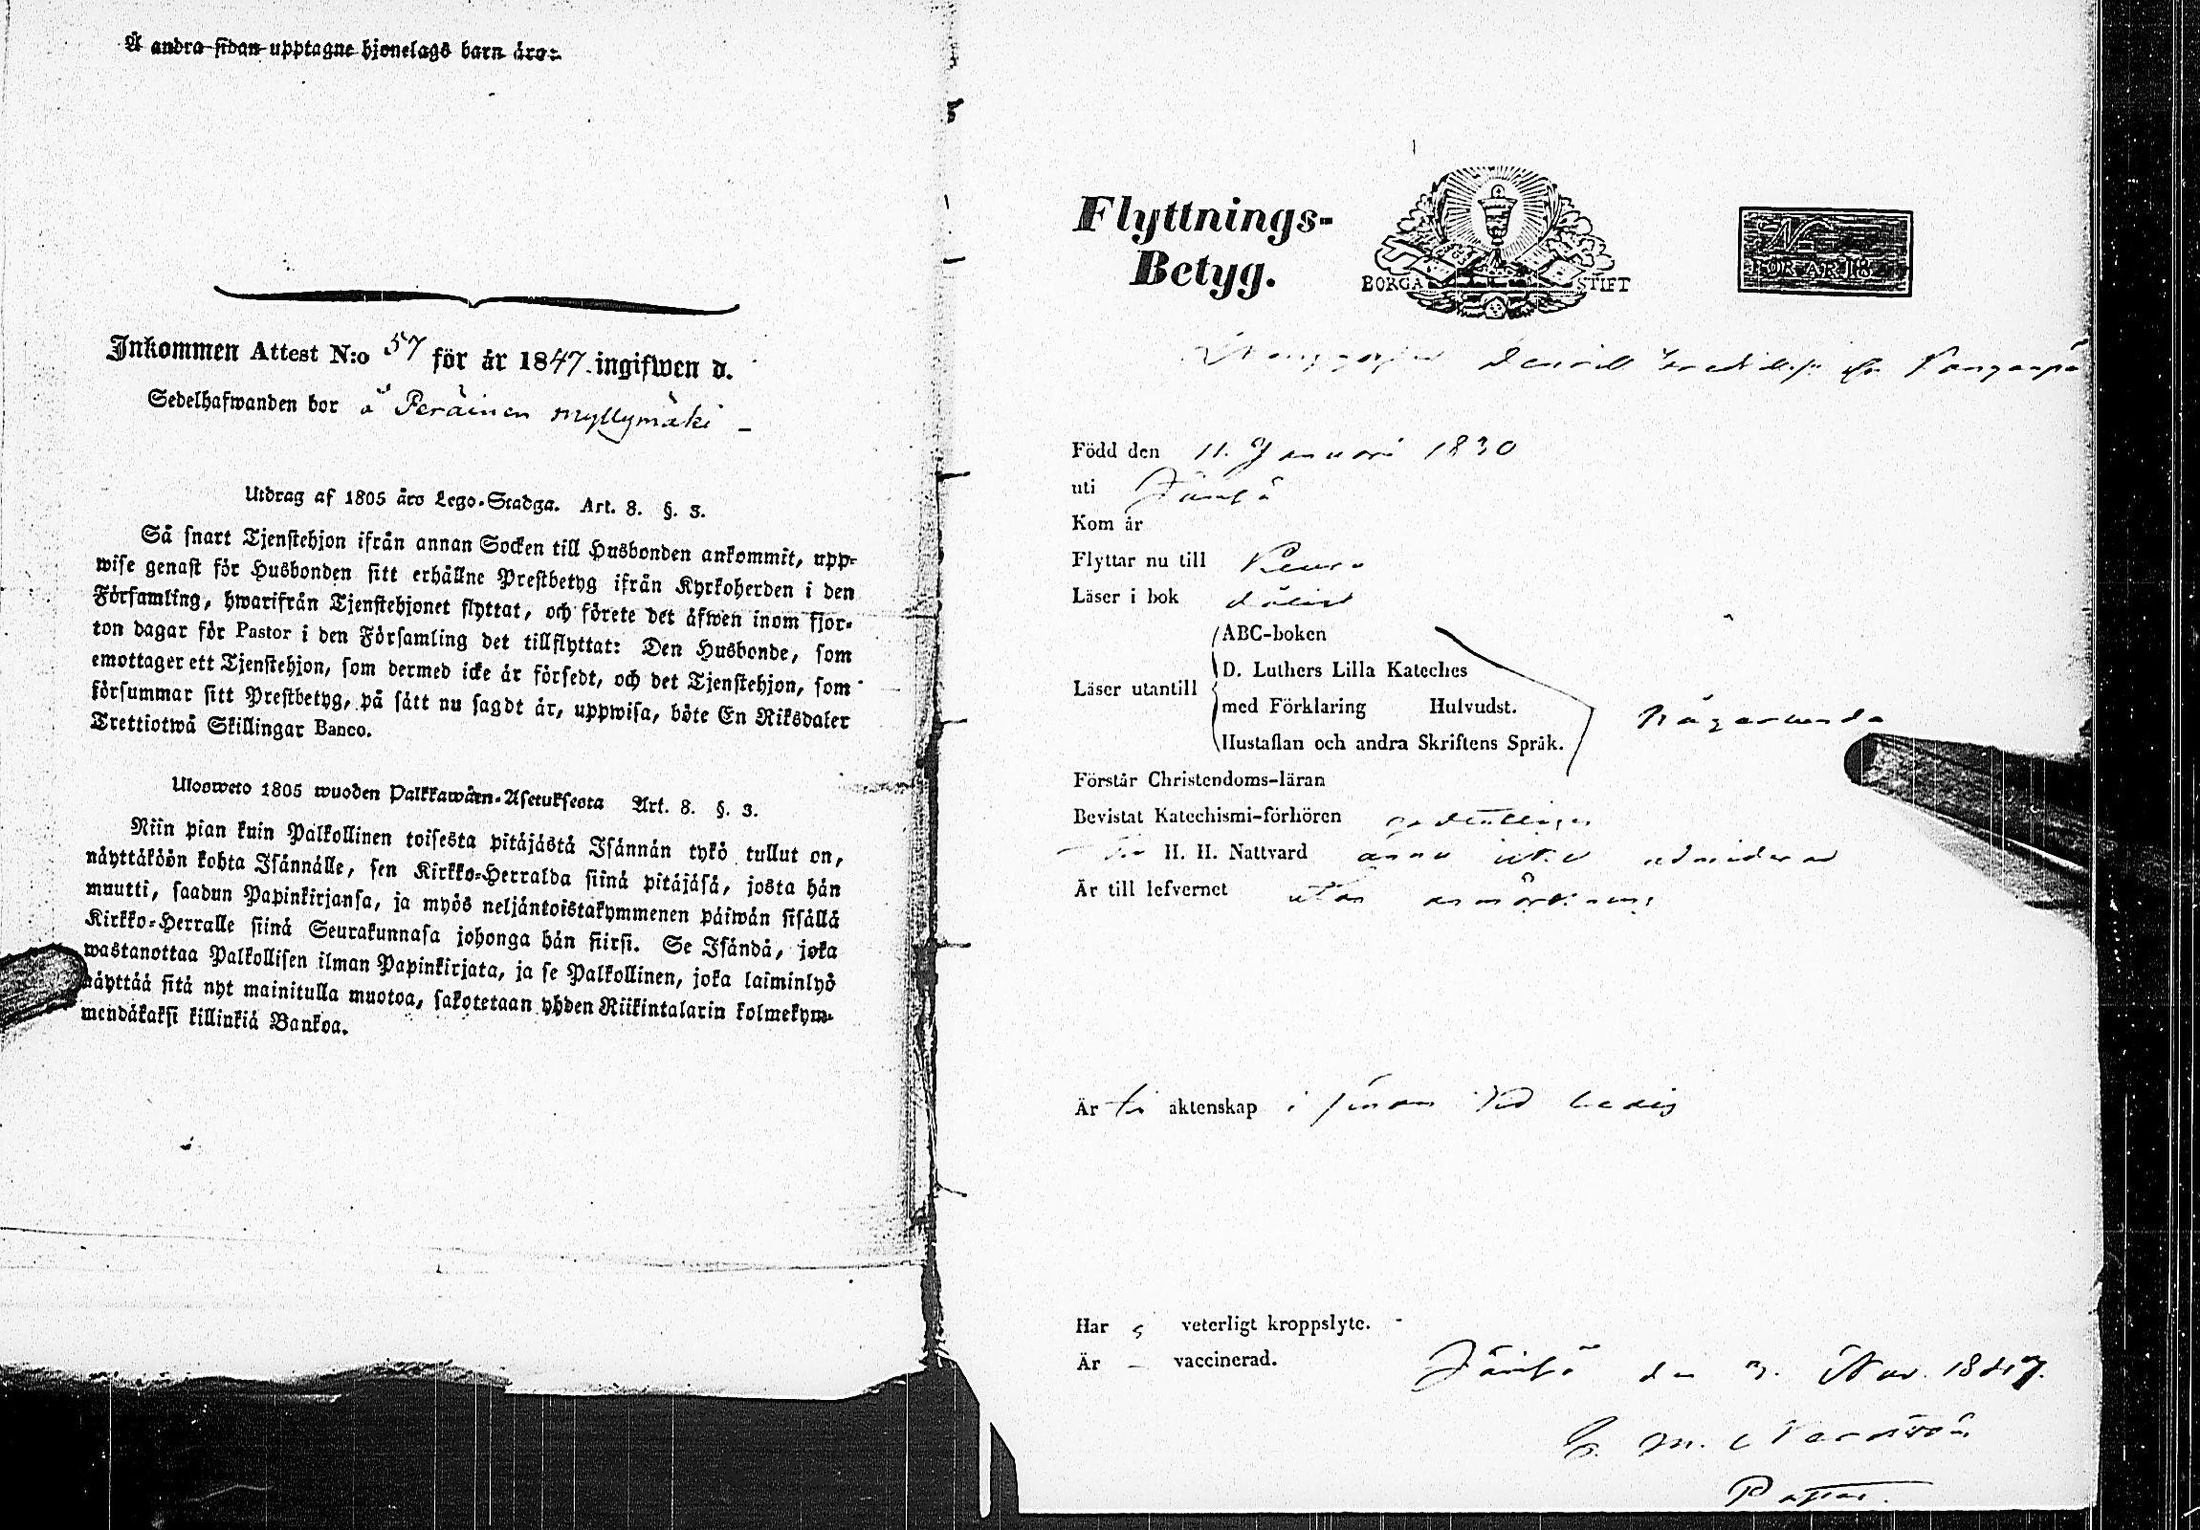 Å andra sidan upptagne hjonelags barn äro:
Inkommen Attest N:o 57 för år 1847 ingifwen d.
Sedelhafwanden bor å Peräinen myllymäki –
Utdrag af 1805 åro Lego-Stadga. Art. 8. §. 3.
Så snart Tjenstehjon ifrån annan Socken till Husbonden ankommit, upp-
wise genast för Husbonden sitt erhållne Prestbetyg ifrån Kyrkoherden i den
Församling, hwarifrån Tjenstehjonet flyttat, och förete det äfwen inom fjor-
ton dagar för Pastor i den Församling det tillflyttat: Den Husbonde, som
emottager ett Tjenstehjon, som dermed icke är försedt, och det Tjenstehjon, som
försummar sitt Prestbetyg, på sätt nu sagdt är, uppwisa, böte En Riksdaler
Trettiotwå Skillingar Banco.
Ulosweto 1805 wuoden Palkkawäen-Asetuksesta Art. 8. §. 3.
Niin pian kuin Palkollinen toisesta pitäjästä Isännän tykö tullut on,
näyttäköön kohta Isännälle, sen Kirkko-Herralda siinä pitäjäsä, josta hän
muutti, saadun Papinkirjansa, ja myös neljäntoistakymmenen päiwän sisällä
Kirkko-Herralle siinä Seurakunnasa johonga hän siirsi. Se Isändä, joka
wastanottaa Palkollisen ilman Papinkirjata, ja se Palkollinen, joka laiminlyö
näyttää sitä nyt mainitulla muotoa, sakotetaan yhden Riikintalarin kolmekym-
mendäkaksi killinkiä Bankoa.
Flyttnings-
Betyg.
BORGÅ STIFT
N
FÖR ÅR 18
Född den 11. Januari 1830
uti Jämsä
Kom år
Flyttar nu till
Läser i bok
ABC-boken
D. Luthers Lilla Kateches
Läser utantill
med Förklaring Hufvudst.
Hustaflan och andra Skriftens Språk.
någorlunda
Förstår Christendoms-läran
Bevistat Katechismi-förhören
H. H. Nattvard ännu icke admitterad
Är till lefvernet utan anmärkning
Är till äktenskap ledig
Har ej veterligt kroppslyte.
Är – vaccinerad.
Jämsä den 3. Nov. 1847.
Pastor.